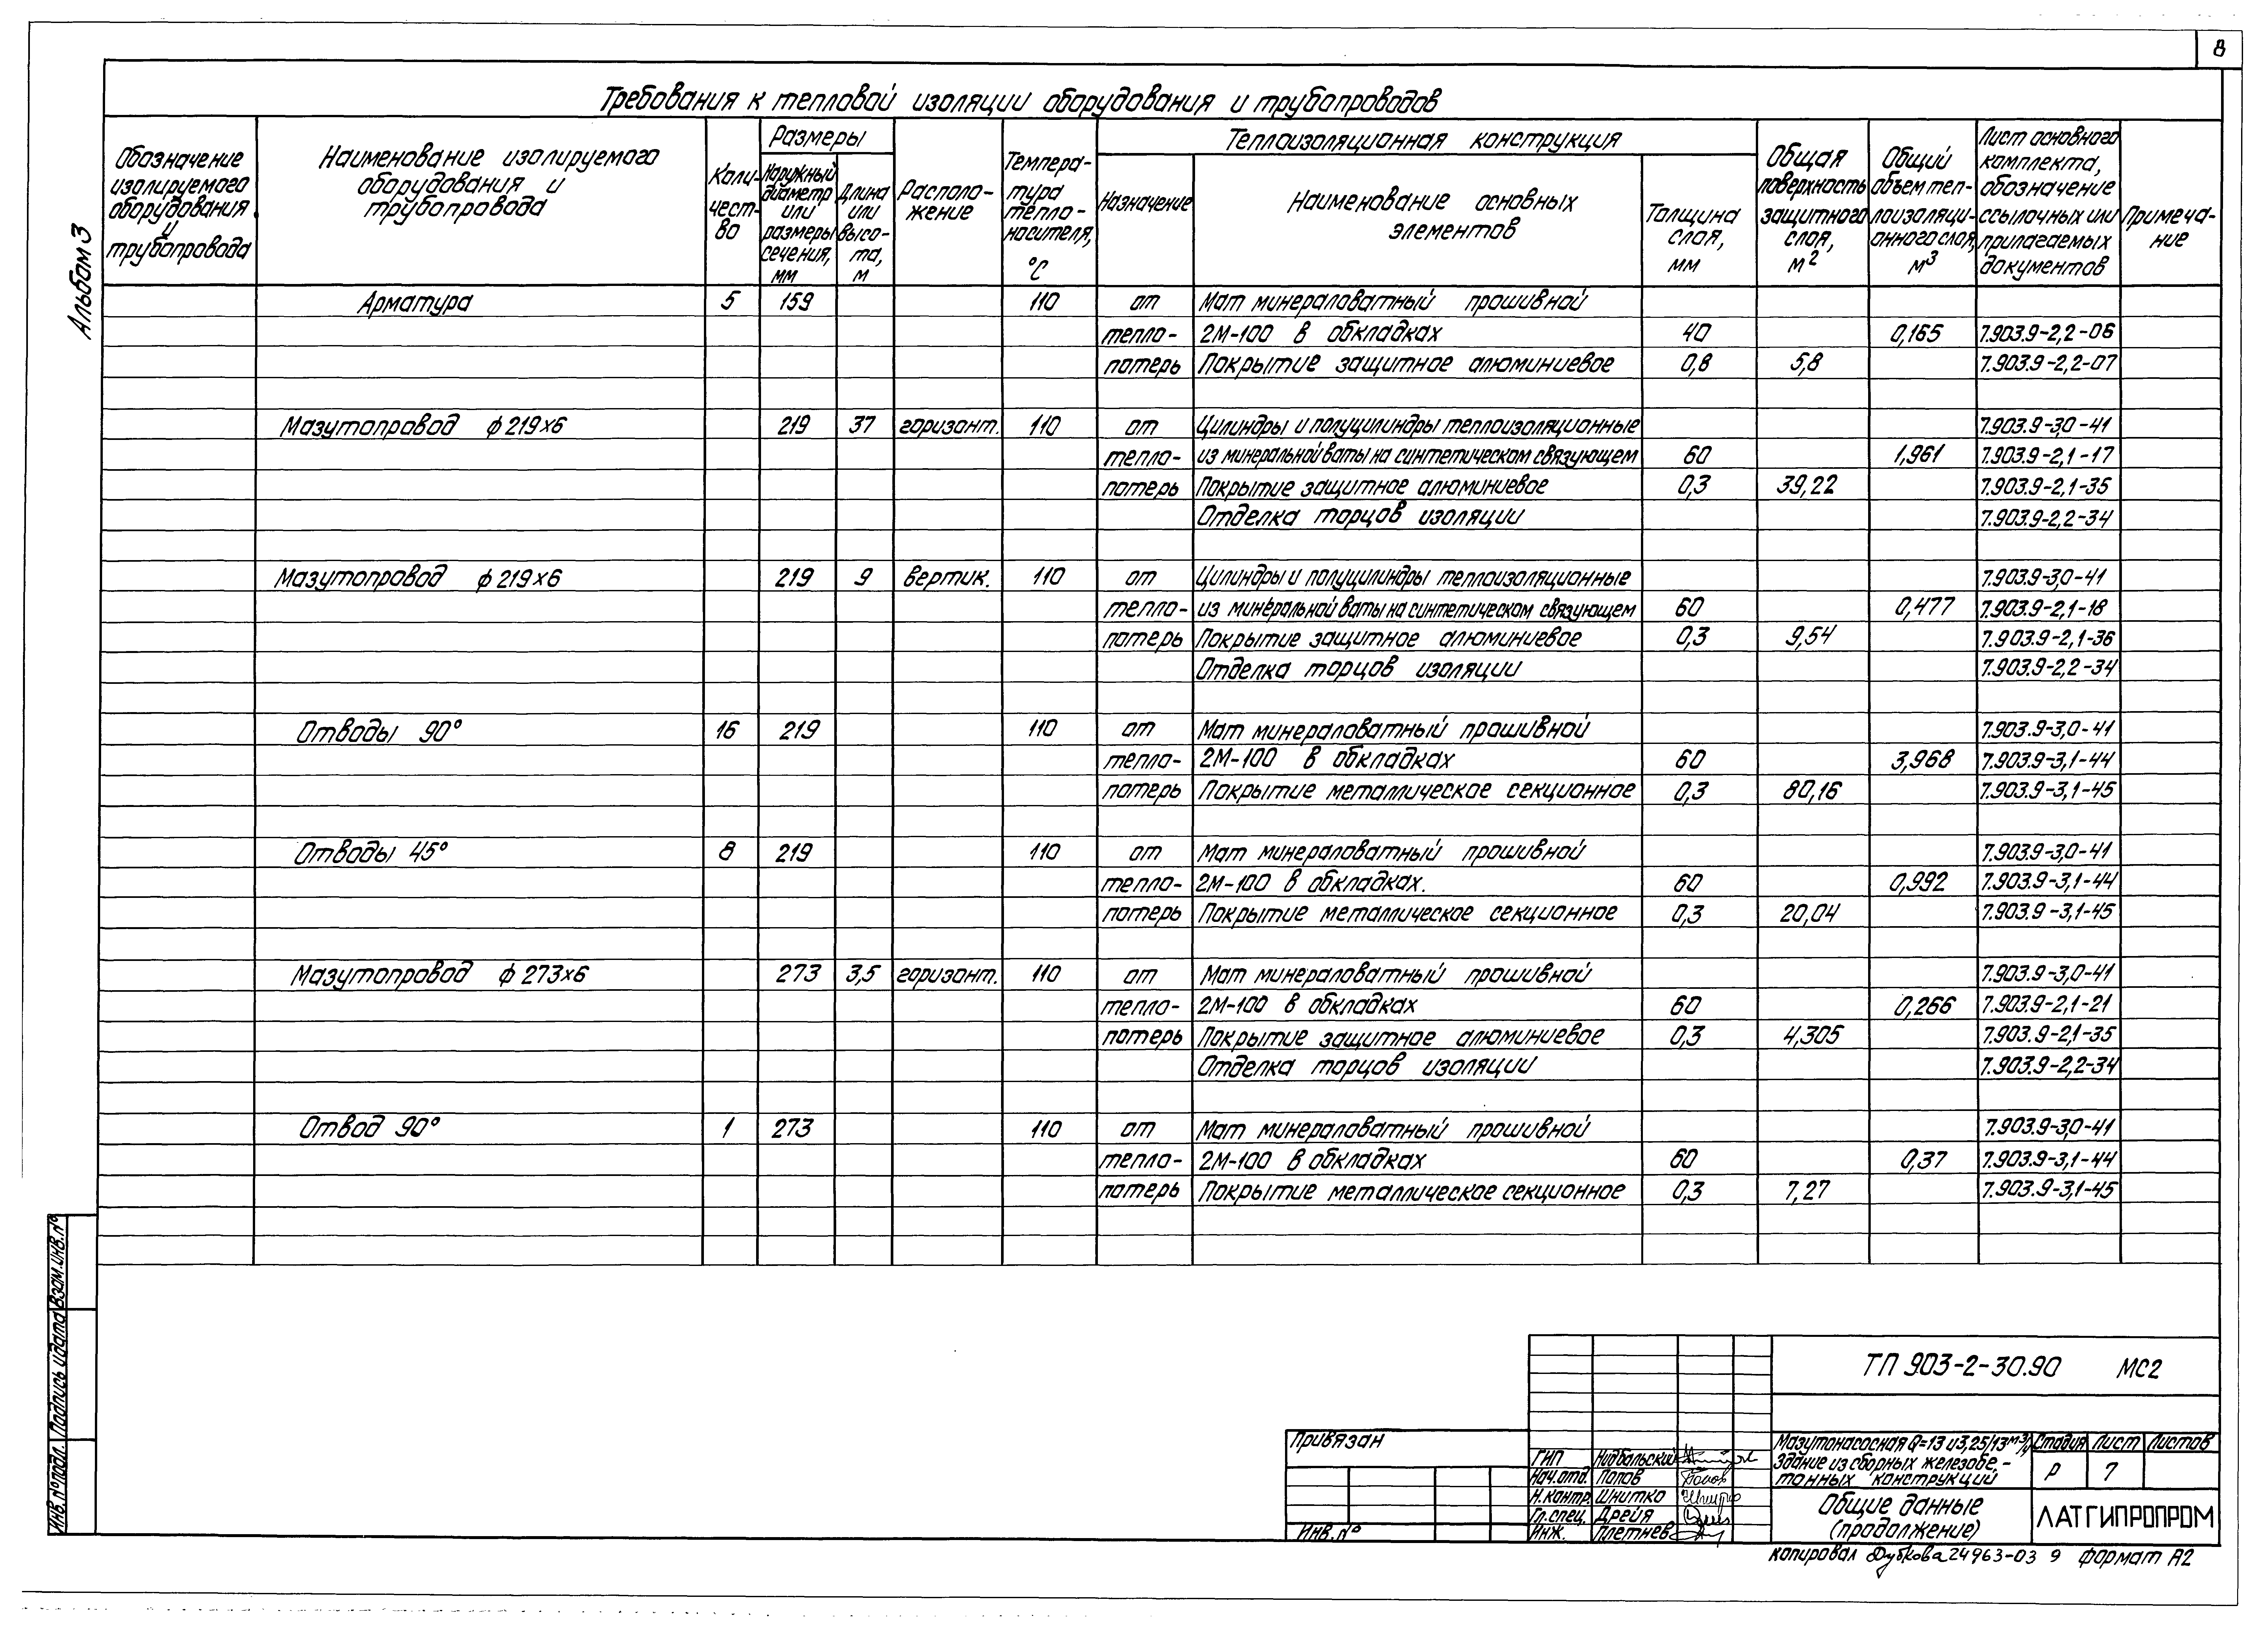 8
Альбом 3
Требования к тепловой изоляции оборудования и трубопроводов
Обозначение изолируемого оборудования и трубопровода
Наименование изолируемого оборудования и трубопровода
Коли-чест-во
Размеры
Наружный диаметр или размеры сечения, мм
Длина или высо-та, м
Располо-жение
Темпера-тура тепло-носителя, °С
Теплоизоляционная конструкция
Назначение
Наименование основных элементов
Толщина слоя, мм
Общая поверхность защитного слоя, м2
Общий объем теп-лоизоляци-онного слоя, м3
Лист основного комплекта, обозначение ссылочных или прилагаемых документов
Примеча-ние
Арматура 5 159 110 от Мат минераловатный прошивной
тепло- 2М-100 в обкладках 40 0,165 7.903.9-2,2-06
потерь Покрытие защитное алюминиевое 0,8 5,8 7.903.9-2,2-07
Мазутопровод ф219х6 219 37 горизонт. 110 от Цилиндры и полуцилиндры теплоизоляционные 7.903.9-3,0-41
тепло- из минеральной ваты на синтетическом связующем 60 1,961 7.903.9-2,1-17
потерь Покрытие защитное алюминиевое 0,3 39,22 7.903.9-2,1-35
Отделка торцов изоляции 7.903.9-2,2-34
Мазутопровод ф219х6 219 9 вертик. 110 от Цилиндры и полуцилиндры теплоизоляционные 7.903.9-3,0-41
тепло- из минеральной ваты на синтетическом связующем 60 0,477 7.903.9-2,1-18
потерь Покрытие защитное алюминиевое 0,3 9,54 7.903.9-2,1-36
Отделка торцов изоляции 7.903.9-2,2-34
Отводы 90° 16 219 110 от Мат минераловатный прошивной 7.903.9-3,0-41
тепло- 2М-100 в обкладках 60 3,968 7.903.9-3,1-44
потерь Покрытие металлическое секционное 0,3 80,16 7.903.9-3,1-45
Отводы 45° 8 219 110 от Мат минераловатный прошивной 7.903.9-3,0-41
тепло- 2М-100 в обкладках. 60 0,992 7.903.9-3,1-44
потерь Покрытие металлическое секционное 0,3 20,04 7.903.9-3,1-45
Мазутопровод ф273х6 273 3,5 горизонт. 110 от Мат минераловатный прошивной 7.903.9-3,0-41
тепло- 2М-100 в обкладках 60 0,266 7.903.9-2,1-21
потерь Покрытие защитное алюминиевое 0,3 4,305 7.903.9-2,1-35
Отделка торцов изоляции 7.903.9-2,2-34
Отвод 90° 1 273 110 от Мат минераловатный прошивной 7.903.9-3,0-41
тепло- 2М-100 в обкладках 60 0,37 7.903.9-3,1-44
потерь Покрытие металлическое секционное 0,3 7,27 7.903.9-3,1-45
Инв.№ подл. Подпись и дата Взам.инв.№
ТП 903-2-30.90 МС2
Привязан
Инв.№
ГИП Нидбальский
Нач.отд. Попов
Н.контр. Шнитко
Гл.спец. Дрейя
Инж. Плетнев
Мазутонасосная Q=13 и 3,25/13 м3/ч
Здание из сборных железобе-
тонных конструкций
Стадия Лист Листов
Р 7
Общие данные
(продолжение)
ЛАТГИПРОПРОМ
Копировал Дубкова 24963-03 9 Формат А2